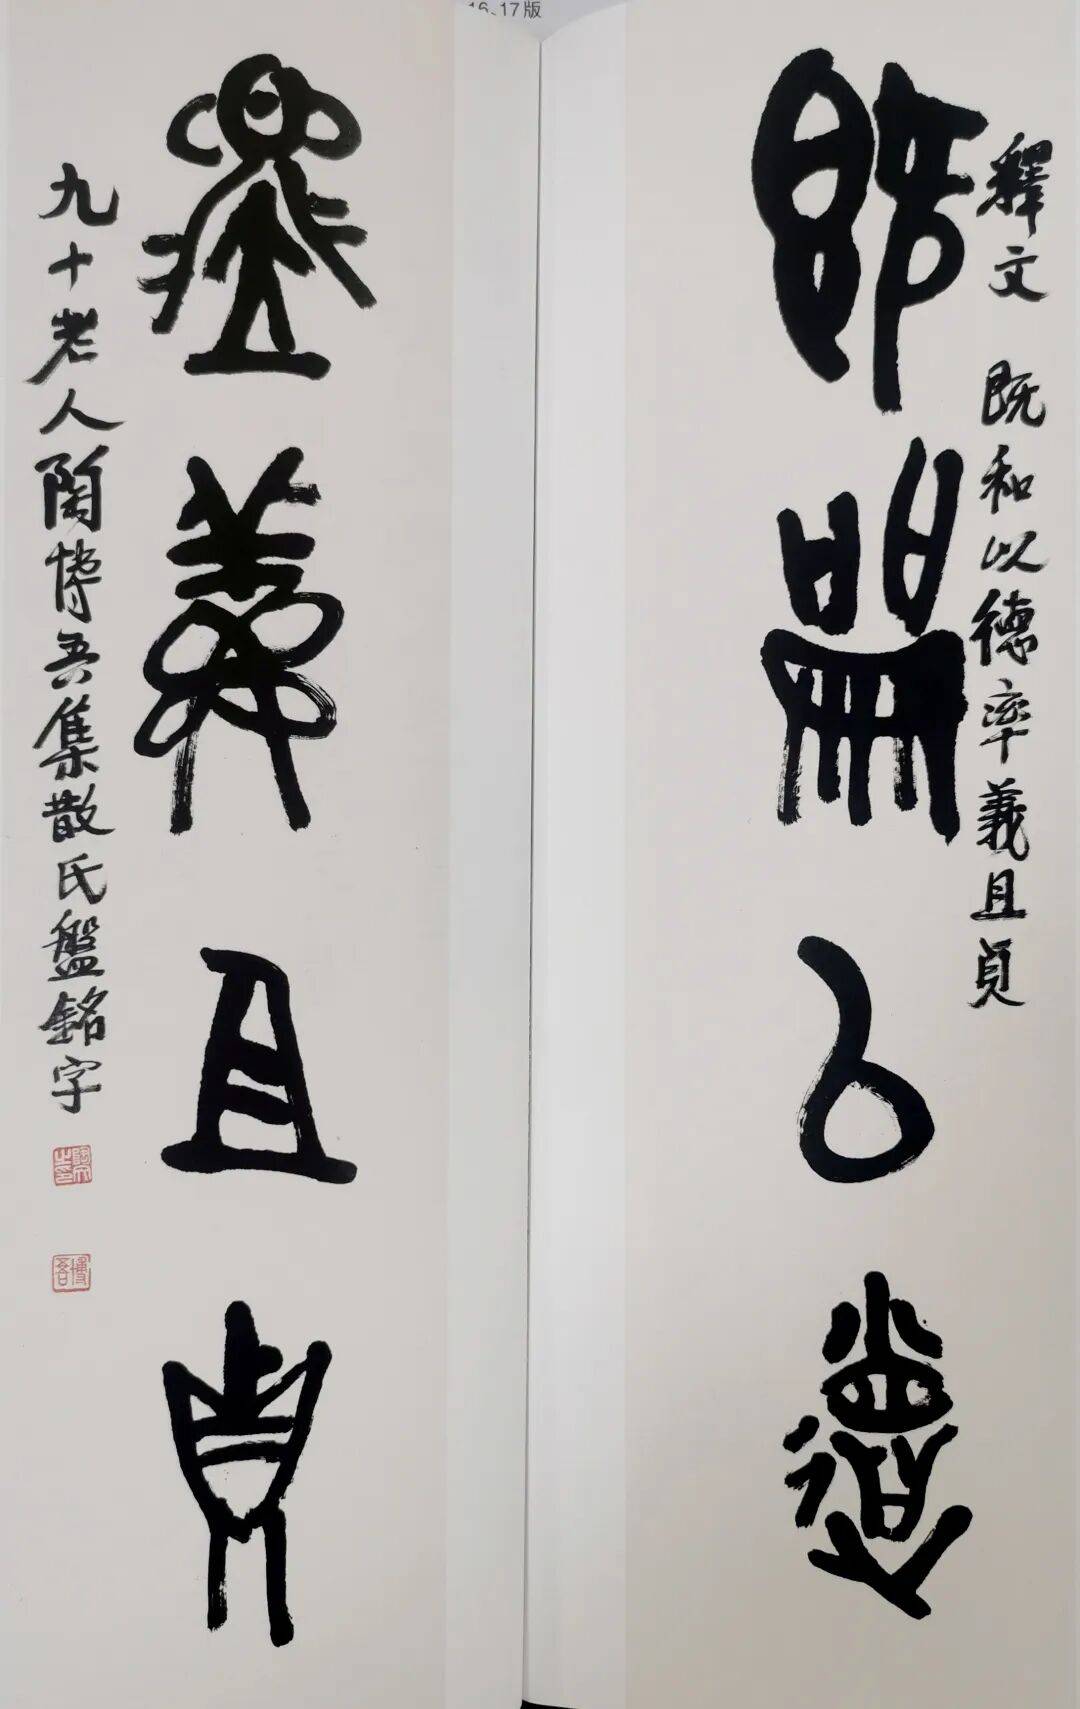 16-17版
释文 既和以德率義且貞
既和以德
率義且貞
九十老人陶博吾集散氏盤銘字
博吾